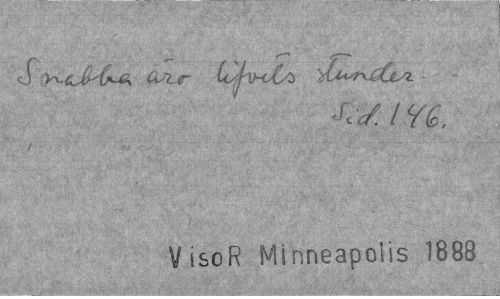 Snabba äro lifvets stunder
Sid. 146.
VisoR Minneapolis 1888